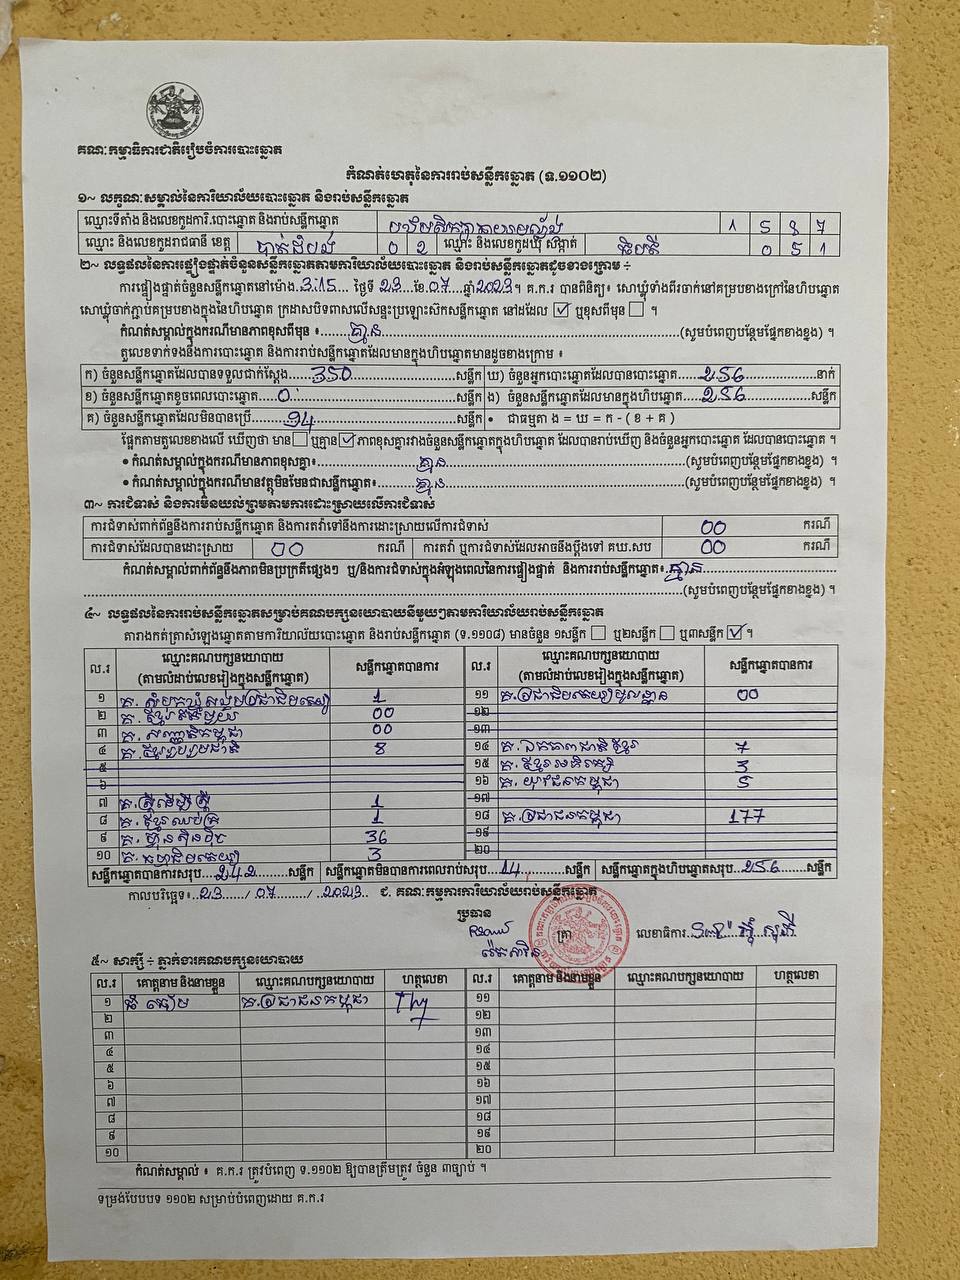 គណៈកម្មាធិការជាតិរៀបចំការបោះឆ្នោត
កំណត់ហេតុនៃការរាប់សន្លឹកឆ្នោត (ទ.១១០២)
១~ លក្ខណៈសម្គាល់នៃការិយាល័យបោះឆ្នោត និងរាប់សន្លឹកឆ្នោត
ឈ្មោះទីតាំង និងលេខកូដការិ.បោះឆ្នោត និងរាប់សន្លឹកឆ្នោត 1 5 8 7
ឈ្មោះ និងលេខកូដរាជធានី ខេត្ត បាត់ដំបង 0 2 ឈ្មោះ និងលេខកូដឃុំ សង្កាត់ 0 5 1
២~ លទ្ធផលនៃការផ្ទៀងផ្ទាត់ចំនួនសន្លឹកឆ្នោតតាមការិយាល័យបោះឆ្នោត និងរាប់សន្លឹកឆ្នោតដូចខាងក្រោម ៖
ការផ្ទៀងផ្ទាត់ចំនួនសន្លឹកឆ្នោតនៅម៉ោង 3:15 ថ្ងៃទី 23 ខែ 07 ឆ្នាំ 2023 ។ គ.ក.រ បានពិនិត្យ៖ សោឃ្លុំទាំងពីរចាក់នៅគម្របខាងក្រៅនៃហិបឆ្នោត
សោឃ្លុំចាក់ភ្ជាប់គម្របខាងក្នុងនៃហិបឆ្នោត ក្រដាសបិទពាសលើសន្ទះប្រឡោះស៊កសន្លឹកឆ្នោត នៅដដែល ☑ ឬខុសពីមុន ☐ ។
កំណត់សម្គាល់ក្នុងករណីមានភាពខុសពីមុន ៖ គ្មាន (សូមបំពេញបន្ថែមផ្នែកខាងខ្នង) ។
តួលេខទាក់ទងនឹងការបោះឆ្នោត និងការរាប់សន្លឹកឆ្នោតដែលមានក្នុងហិបឆ្នោតមានដូចខាងក្រោម ៖
ក) ចំនួនសន្លឹកឆ្នោតដែលបានទទួលជាក់ស្តែង 350 សន្លឹក ឃ) ចំនួនអ្នកបោះឆ្នោតដែលបានបោះឆ្នោត 256 នាក់
ខ) ចំនួនសន្លឹកឆ្នោតខូចពេលបោះឆ្នោត 0 សន្លឹក ង) ចំនួនសន្លឹកឆ្នោតដែលមានក្នុងហិបឆ្នោត 256 សន្លឹក
គ) ចំនួនសន្លឹកឆ្នោតដែលមិនបានប្រើ 94 សន្លឹក • ជាធម្មតា ង = ឃ = ក - ( ខ + គ )
ផ្អែកតាមតួលេខខាងលើ ឃើញថា មាន ☐ ឬគ្មាន ☑ ភាពខុសគ្នារវាងចំនួនសន្លឹកឆ្នោតក្នុងហិបឆ្នោត ដែលបានរាប់ឃើញ និងចំនួនអ្នកបោះឆ្នោត ដែលបានបោះឆ្នោត ។
• កំណត់សម្គាល់ក្នុងករណីមានភាពខុសគ្នា៖ គ្មាន (សូមបំពេញបន្ថែមផ្នែកខាងខ្នង) ។
• កំណត់សម្គាល់ក្នុងករណីមានវត្ថុមិនមែនជាសន្លឹកឆ្នោត៖ គ្មាន (សូមបំពេញបន្ថែមផ្នែកខាងខ្នង) ។
៣~ ការជំទាស់ និងការមិនយល់ព្រមតាមការដោះស្រាយលើការជំទាស់
ការជំទាស់ពាក់ព័ន្ធនឹងការរាប់សន្លឹកឆ្នោត និងការតវ៉ាទៅនឹងការដោះស្រាយលើការជំទាស់ 00 ករណី
ការជំទាស់ដែលបានដោះស្រាយ 00 ករណី ការតវ៉ា ឬការជំទាស់ដែលអាចនឹងប្តឹងទៅ គឃ.សប 00 ករណី
កំណត់សម្គាល់ពាក់ព័ន្ធនឹងភាពមិនប្រក្រតីផ្សេងៗ ឬ/និងការជំទាស់ក្នុងអំឡុងពេលនៃការផ្ទៀងផ្ទាត់ និងការរាប់សន្លឹកឆ្នោត៖ គ្មាន
(សូមបំពេញបន្ថែមផ្នែកខាងខ្នង) ។
៤~ លទ្ធផលនៃការរាប់សន្លឹកឆ្នោតសម្រាប់គណបក្សនយោបាយនីមួយៗតាមការិយាល័យរាប់សន្លឹកឆ្នោត
តារាងកត់ត្រាសំឡេងឆ្នោតតាមការិយាល័យបោះឆ្នោត និងរាប់សន្លឹកឆ្នោត (ទ.១១០៨) មានចំនួន ១សន្លឹក ☐ ឬ២សន្លឹក ☐ ឬ៣សន្លឹក ☑ ។
ល.រ ឈ្មោះគណបក្សនយោបាយ (តាមលំដាប់លេខរៀងក្នុងសន្លឹកឆ្នោត) សន្លឹកឆ្នោតបានការ ល.រ ឈ្មោះគណបក្សនយោបាយ (តាមលំដាប់លេខរៀងក្នុងសន្លឹកឆ្នោត) សន្លឹកឆ្នោតបានការ
១ គ. សំបុកឃ្មុំសង្គមប្រជាធិបតេយ្យ 1 ១១ គ.ប្រជាធិបតេយ្យមូលដ្ឋាន 00
២ 00 ១២
៣ គ. សញ្ជាតិកម្ពុជា 00 ១៣
៤ គ. ខ្មែររួបរួមជាតិ 8 ១៤ គ. ឯកភាពជាតិខ្មែរ 7
៥ ១៥ គ. ខ្មែរអភិរក្ស 3
៦ ១៦ គ. យុវជនកម្ពុជា 5
៧ គ. ស្ត្រីដើម្បីស្ត្រី 1 ១៧
៨ គ. ខ្មែរឈប់ក្រ 1 ១៨ គ.ប្រជាជនកម្ពុជា 177
៩ គ. ហ៊្វុនស៊ិនប៉ិច 36 ១៩
១០ គ. ធម្មាធិបតេយ្យ 3 ២០
សន្លឹកឆ្នោតបានការសរុប 242 សន្លឹក សន្លឹកឆ្នោតមិនបានការពេលរាប់សរុប 14 សន្លឹក សន្លឹកឆ្នោតក្នុងហិបឆ្នោតសរុប 256 សន្លឹក
កាលបរិច្ឆេទ៖ 23 / 07 / 2023 ជ. គណៈកម្មការការិយាល័យរាប់សន្លឹកឆ្នោត
ប្រធាន ត្រា លេខាធិការ
៥~ សាក្សី ៖ ភ្នាក់ងារគណបក្សនយោបាយ
ល.រ គោត្តនាម និងនាមខ្លួន ឈ្មោះគណបក្សនយោបាយ ហត្ថលេខា ល.រ គោត្តនាម និងនាមខ្លួន ឈ្មោះគណបក្សនយោបាយ ហត្ថលេខា
១ គ.ប្រជាជនកម្ពុជា ១១
២ ១២
៣ ១៣
៤ ១៤
៥ ១៥
៦ ១៦
៧ ១៧
៨ ១៨
៩ ១៩
១០ ២០
កំណត់សម្គាល់ ៖ គ.ក.រ ត្រូវបំពេញ ទ.១១០២ ឱ្យបានត្រឹមត្រូវ ចំនួន ៣ច្បាប់ ។
ទម្រង់បែបបទ ១១០២ សម្រាប់បំពេញដោយ គ.ក.រ